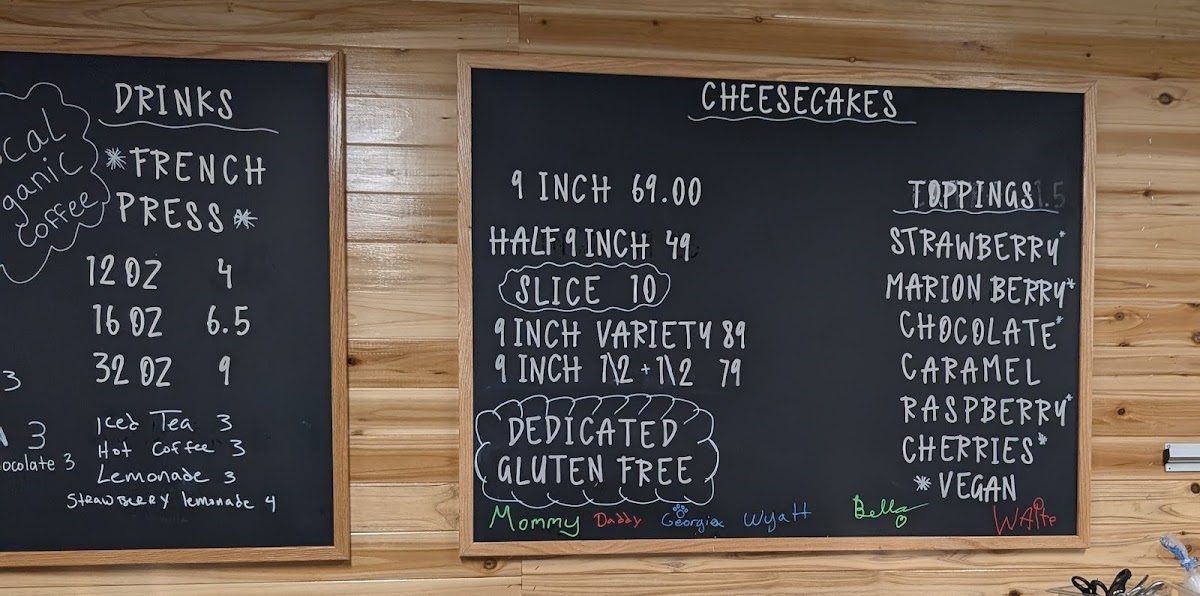 DRINKS
*FRENCH
PRESS*
Coffee
12 OZ 4
16 OZ 6.5
32 OZ 9
3
3
3
Iced Tea 3
Hot Coffee 3
Lemonade 3
Strawberry lemonade 4
CHEESECAKES
9 INCH 69.00
HALF 9 INCH 49
SLICE 10
9 INCH VARIETY 89
9 INCH 1\2 + 1\2 79
DEDICATED
GLUTEN FREE
TOPPINGS 1.5
STRAWBERRY*
MARION BERRY*
CHOCOLATE*
CARAMEL
RASPBERRY*
CHERRIES*
*VEGAN
Mommy Daddy Georgiex Wyatt Bella